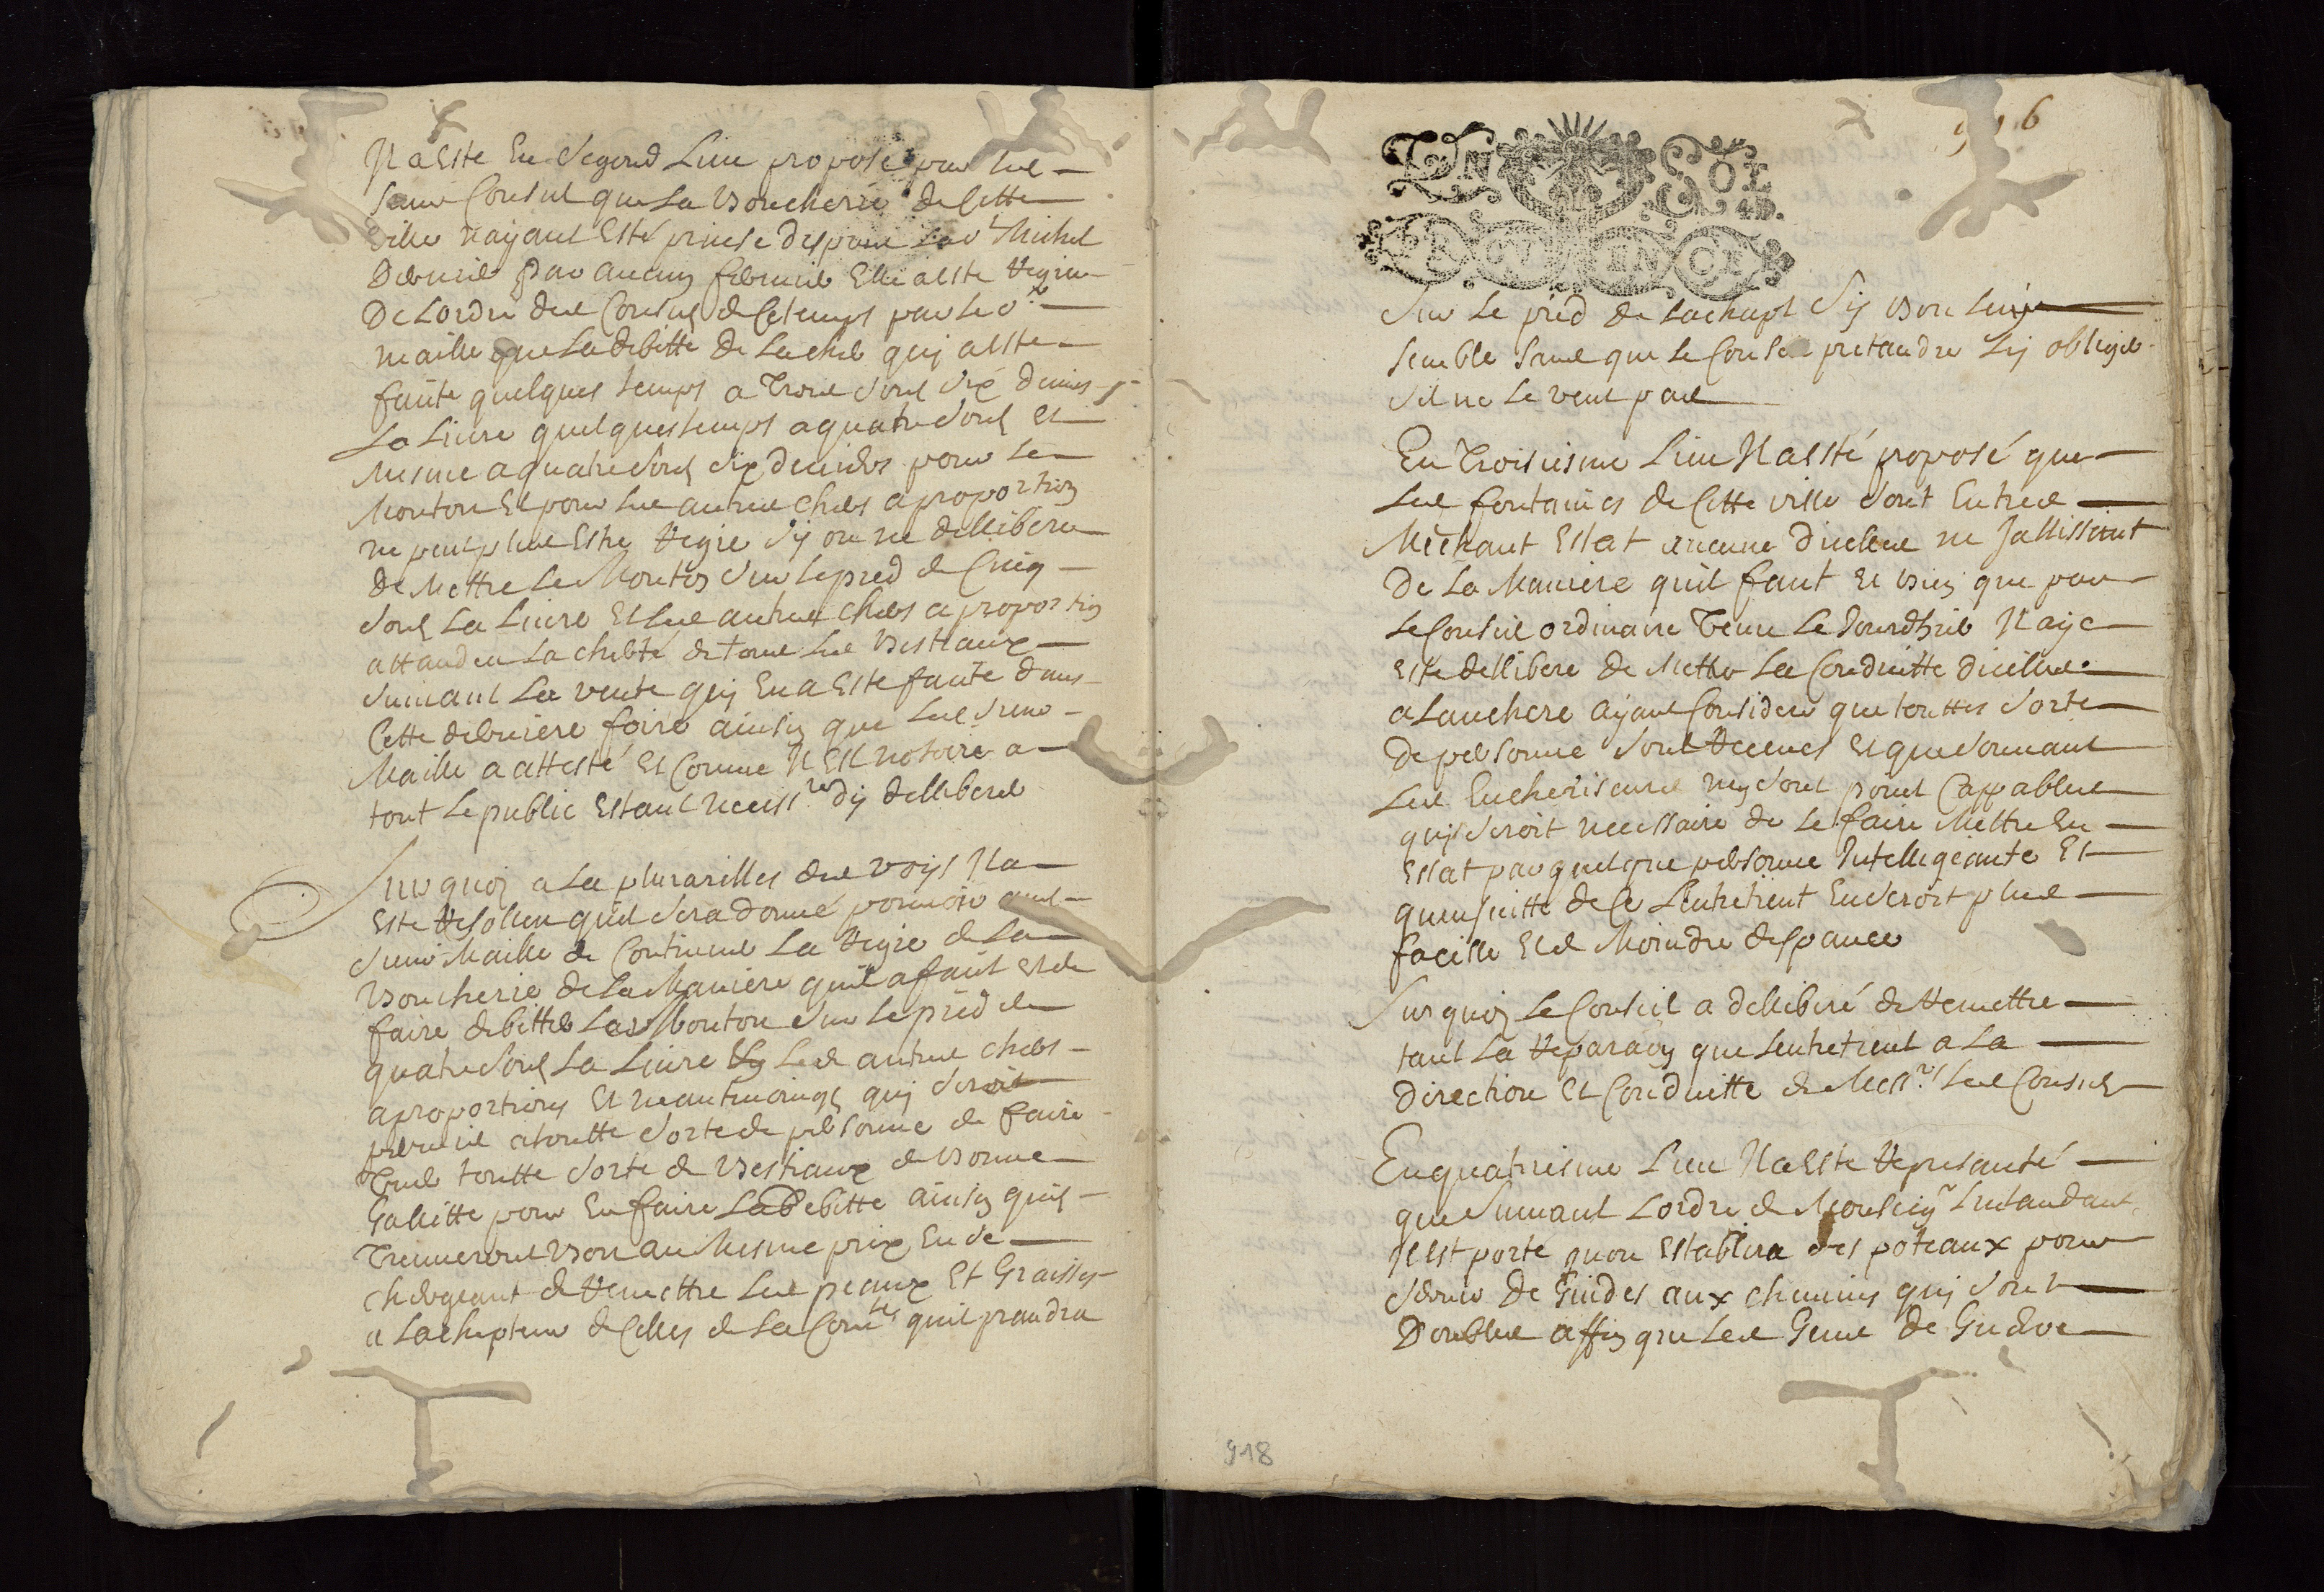 Il a Esté En segond Lieu proposé par les
sieurs Consuls que La Boucherie de Cette
ville nayant Esté prinse despuis Le sr Michel
par aucun fermier Elle a Esté Regie
De Lordre des Consuls de Ce temps par Le sr
maille que La debitte de La cher quy a Esté
faute quelques temps a trois sous six deniers
La Livre quelques temps a quatre sous Et
Mesme a quatre sous six deniers pour Le
Mouton Et pour Les autres chers a proportion
ne peut plus Estre Regie sy on ne dellibere
de Mettre Le Mouton sur Le pied de Cinq
sous La Livre Et Les autres chers a proportion
attandeu La cherté de tous Les Bestiaux
suivant La vente quy En a Esté faite dans
Cette derniere foire ainsin que Led sieur
Maille a attesté Et Comme Il Est notoire a
tout Le public Estant necessre dy delliberer
Surquoy a La plurarilles des voys Il a
Esté Resolleu quil sera donné pouvoir aud
sieur Maille de Continuer La Regie de La
Boucherie de La Maniere quil a fait Et de
faire debitter Les Mouton sur Le pied de
quatre sous La Livre Et Les autres chers
a proportion Et neantmoings quy seroit
permis a toutte sorte de personne de faire
Tuer toutte sorte de Bestiaux de Bonne
Gallitte pour En faire La Debitte ainsin quils
Treuveront Bon au Mesme prix En se
chergeant de Remettre Les peaux Et Graisses
a Lachepteur de Celles de La Comté quil prandra
916
IN SOL
4D.
PROVENCE
Sur Le pied de Lachapt sy Bon Luy
semble sans que Le Conseil pretandre Ly obliger
sil ne Le veut pas
En Troisiesme Lieu Il a Esté proposé que
Les fontaines de Cette ville sont En tres
Mechant Estat aucune dicelles ne Jallissant
De La Maniere quil faut Et bien que par
Le Conseil ordinaire Tenu Le Jourdhuy Il aye
Esté dellibere de Mettre La Conduitte dicelles
a Lanchere ayant Consideré que touttes sorte
De personne sont Receues Et que souvant
Les Encherisseurs ny sont point Cappables
quy seroit necessaire de Le faire Mettre En
Estat par quelque personne Intelligeante Et
quensuitte de Ce Lentretient En seroit plus
facille Et de Moindre despance
Surquoy Le Conseil a delliberé de Remettre
tant La Reparaon que Lentretient a La
Direction Et Conduitte de Messrs Les Consuls
En quatriesme Lieu Il a Esté Represanté
que suivant Lordre de Monseigr Lintandant
Il Est porté quon Establira des poteaux pour
servir De Guides aux chemins quy sont
Doubles affin que Les Gens de Guerre
918